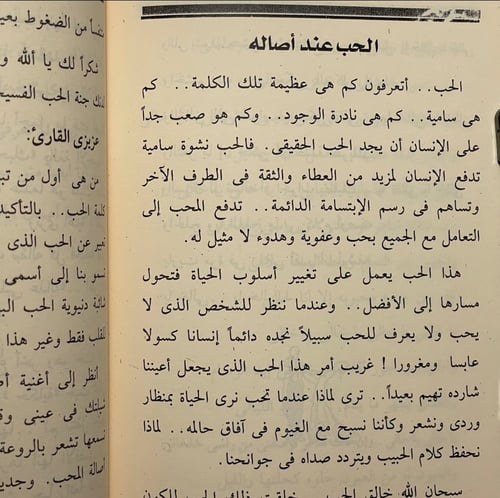 الحب عند أصاله
الحب.. أتعرفون كم هى عظيمة تلك الكلمة.. كم
هى سامية.. كم هى نادرة الوجود.. وكم هو صعب جداً
على الإنسان أن يجد الحب الحقيقى. فالحب نشوة سامية
تدفع الإنسان لمزيد من العطاء والثقة فى الطرف الآخر
وتساهم فى رسم الإبتسامة الدائمة.. تدفع المحب إلى
التعامل مع الجميع بحب وعفوية وهدوء لا مثيل له.
هذا الحب يعمل على تغيير أسلوب الحياة فتحول
مسارها إلى الأفضل.. وعندما ننظر للشخص الذى لا
يحب ولا يعرف للحب سبيلاً نجده دائماً إنسانا كسولا
عابسا ومغرورا! غريب أمر هذا الحب الذى يجعل أعيننا
شارده تهيم بعيداً.. ترى لماذا عندما نحب نرى الحياة بمنظار
وردى ونشعر وكأننا نسبح مع الغيوم فى آفاق حالمه.. لماذا
نحفظ كلام الحبيب ويتردد صداه فى جوانحنا.
سبحان الله خالق الحب
من الضغوط
شكراً لك يا الله
جنة الحب
عزيزى القارئ:
من هى أول من
كلمة الحب.. بالتأكيد
عن الحب الذى
بنا إلى أسمى
دنيوية الحب
فقط وغير هذا
أنظر إلى أغنية
فى عينى
تشعر بالروعة
أصالة المحب.